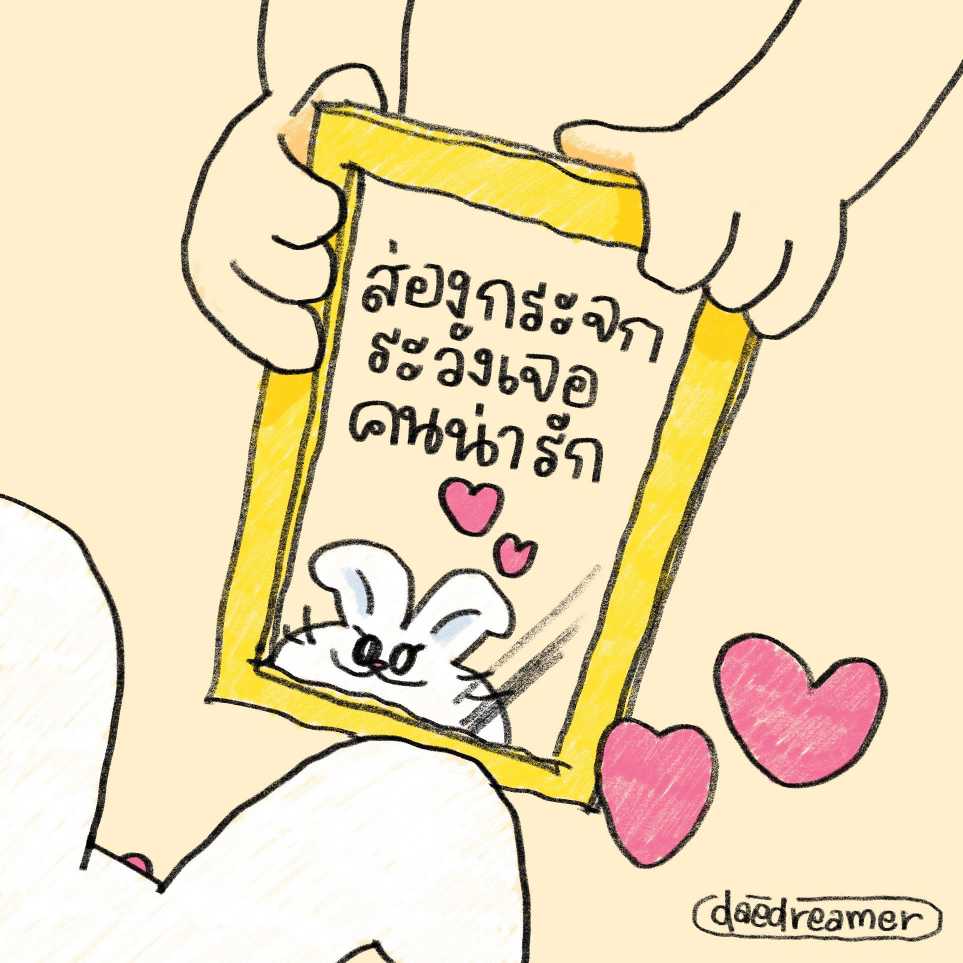 ส่องกระจก
ระวังเจอ
คนน่ารัก
daedreamer